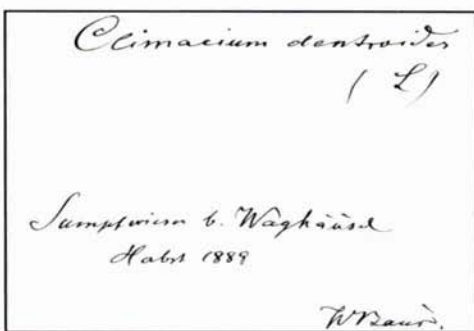 Climacium dentroides
(L)
Sumpfwiesen b. Waghäusel
Herbst 1889
WBaur.